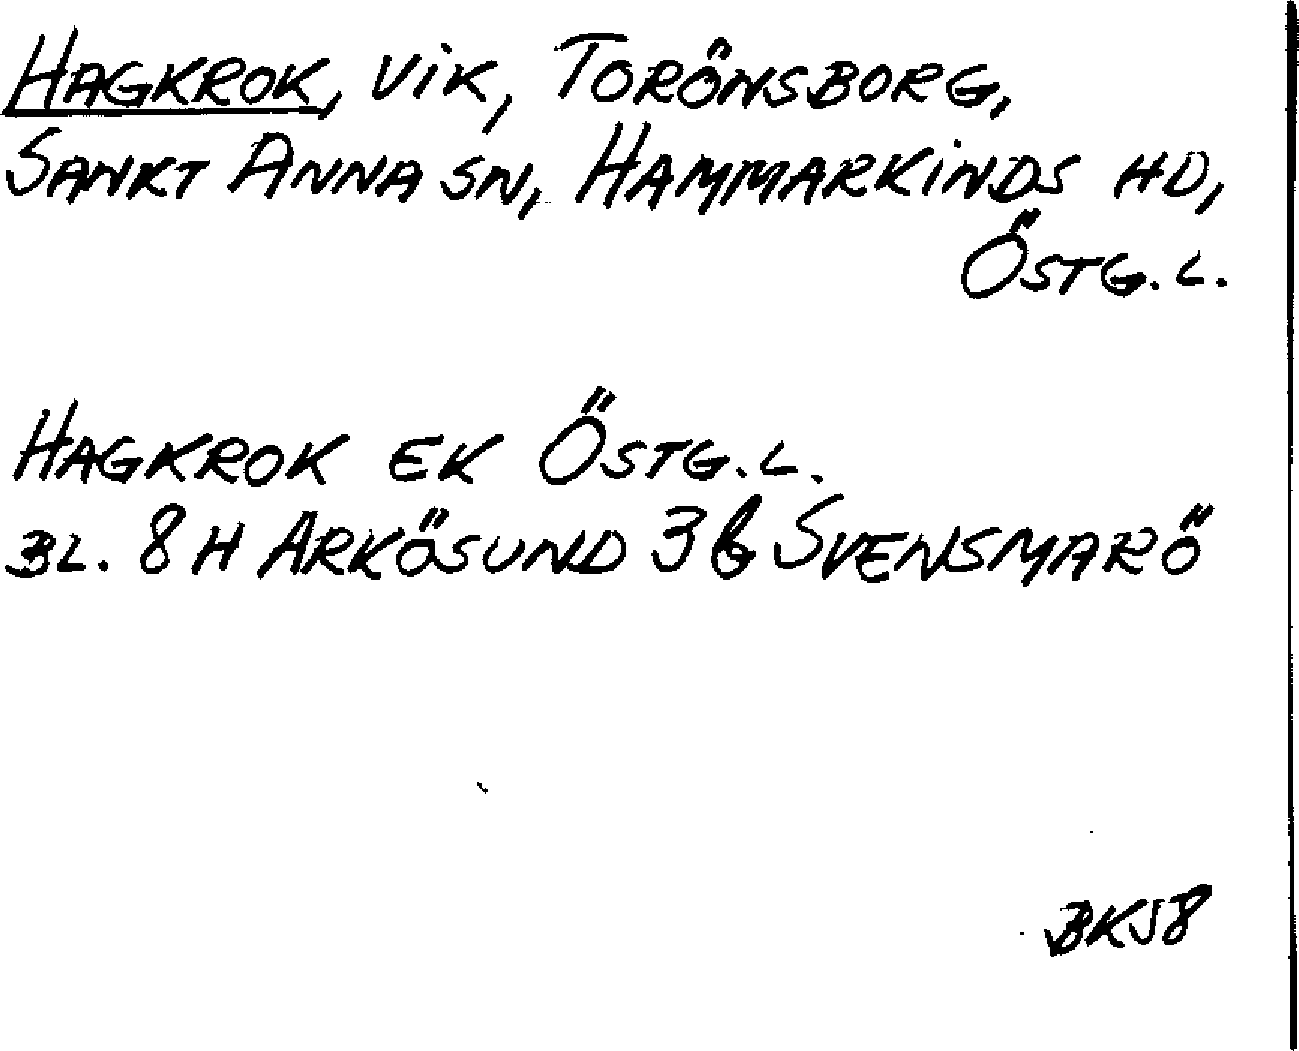 HAGKROK, VIK, TORÖNSBORG,
SANKT ANNA SN, HAMMARKINDS HD,
ÖSTG.L.
HAGKROK EK ÖSTG.L.
BL. 8 H ARKÖSUND 3 b SVENSMARÖ
BKJ8